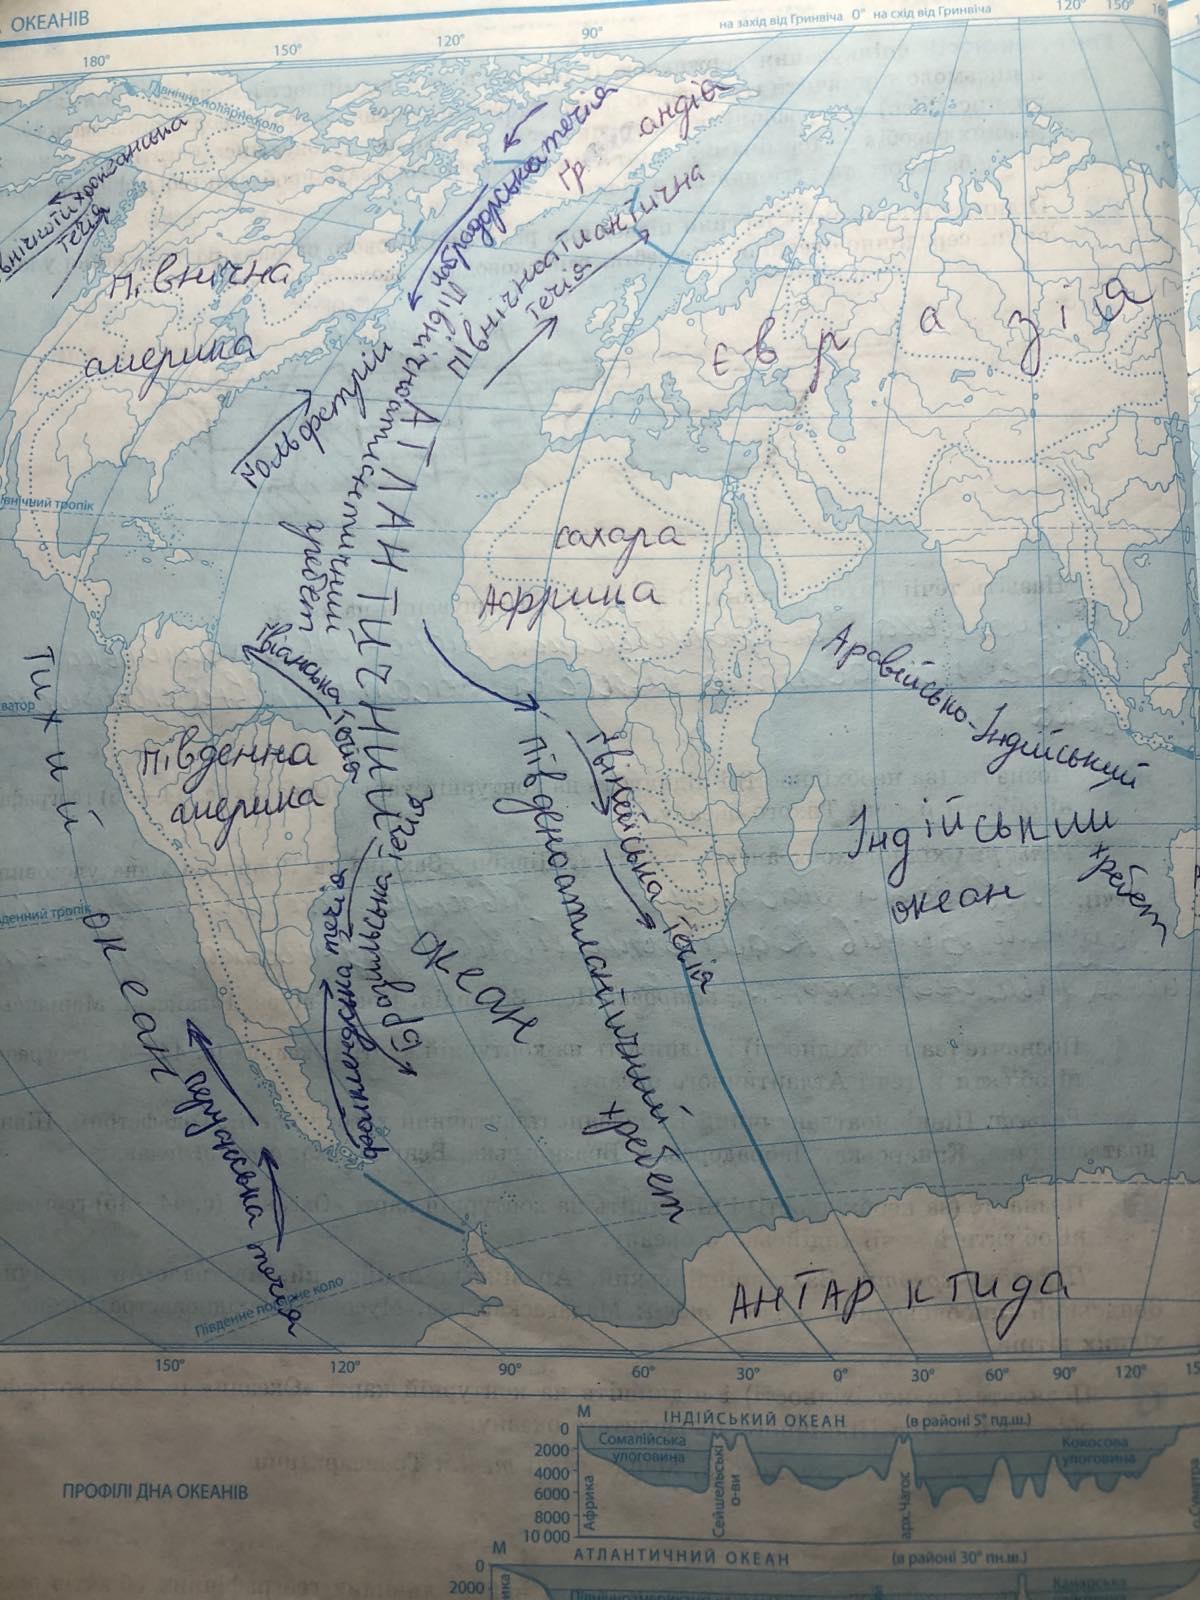 ОКЕАНІВ
на захід від Гринвіча 0° на схід від Гринвіча
180°
150°
120°
90°
120°
150°
Північне полярне коло
течія
Гр андія
Північноатлантична
течія
течія
Північна
америка
Є в р а з і я
Гольфстрім
Північноатлантичний
хребет
АТЛАНТИЧНИЙ
океан
північний тропік
сахара
Африка
Гвіанська течія
Аравійсько-Індійський
хребет
Тихий
океан
Південна
америка
Південоатлантичний
хребет
Гвінейська течія
Індійський
океан
Бразильська течія
течія
Перуанська течія
АНТАРКТИДА
Південне полярне коло
150°
120°
90°
60°
30°
0°
30°
60°
90°
120°
ПРОФІЛІ ДНА ОКЕАНІВ
М
ІНДІЙСЬКИЙ ОКЕАН
(в районі 5° пд.ш.)
0
2000
4000
6000
8000
10 000
Африка
Сомалійська
улоговина
Сейшельські
о-ви
арх.Чагос
Кокосова
улоговина
о.Суматра
М
АТЛАНТИЧНИЙ ОКЕАН
(в районі 30° пн.ш.)
0
2000
Канарська